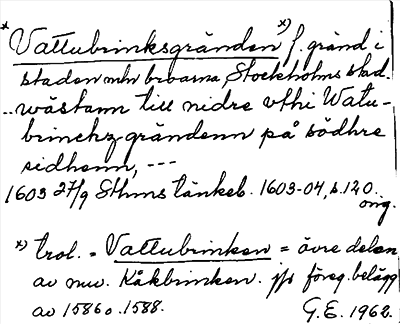 * Vattubrinksgränden x) f. gränd i
staden mln broarna, Stockholms stad.
..wästann till nidre vthi Watu-
brinchzgrändenn på södhre
sidhenn, ---
1603 27/9 Sthms tänkeb. 1603-04, s. 120.
orig.
x) trol. = Vattubrinken = övre delen
av nuv. Kåkbrinken. jfr föreg. belägg
av 1586 o. 1588. G.E. 1962.